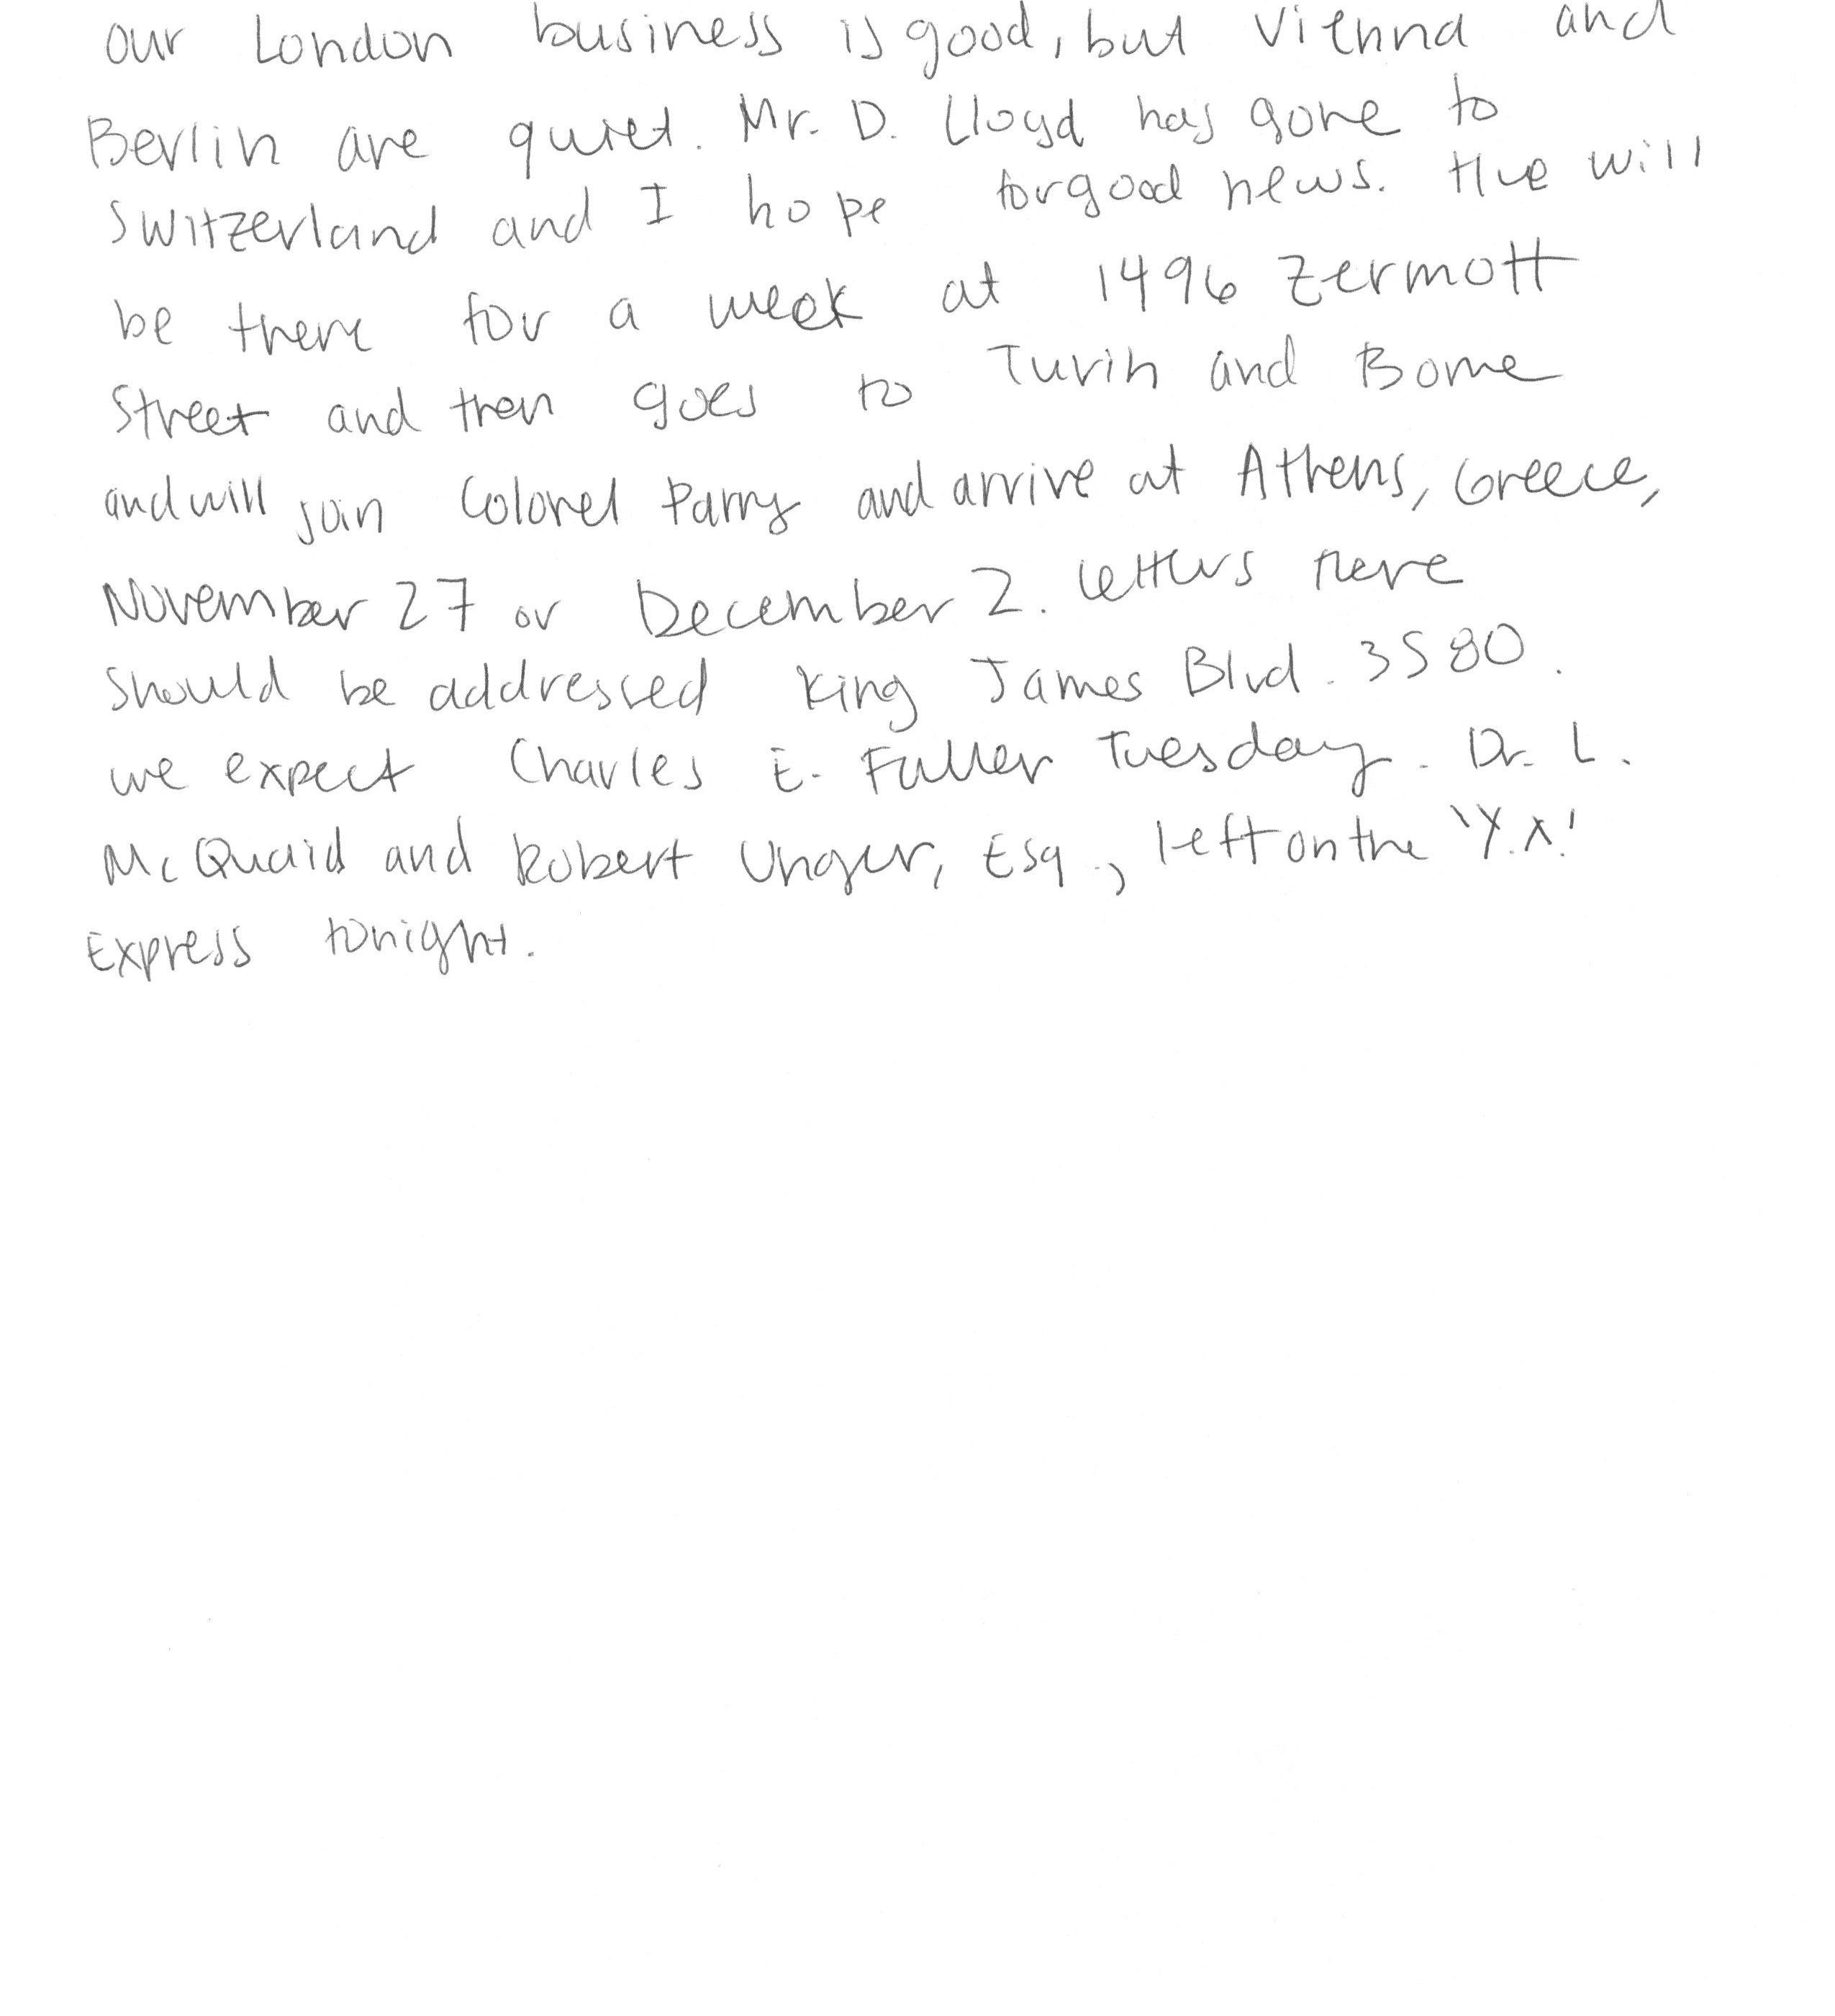 our London business is good, but Vienna and
Berlin are quiet. Mr. D. Lloyd has gone to
Switzerland and I hope for good news. He will
be there for a week at 1496 Zermott
Street and then goes to Turin and Rome
and will join Colonel Parry and arrive at Athens, Greece,
November 27 or December 2. Letters there
should be addressed King James Blvd. 3580.
we expect Charles E. Fuller Tuesday. Dr. L.
McQuaid and Robert Unger, Esq., left on the 'Y.X.'
Express tonight.